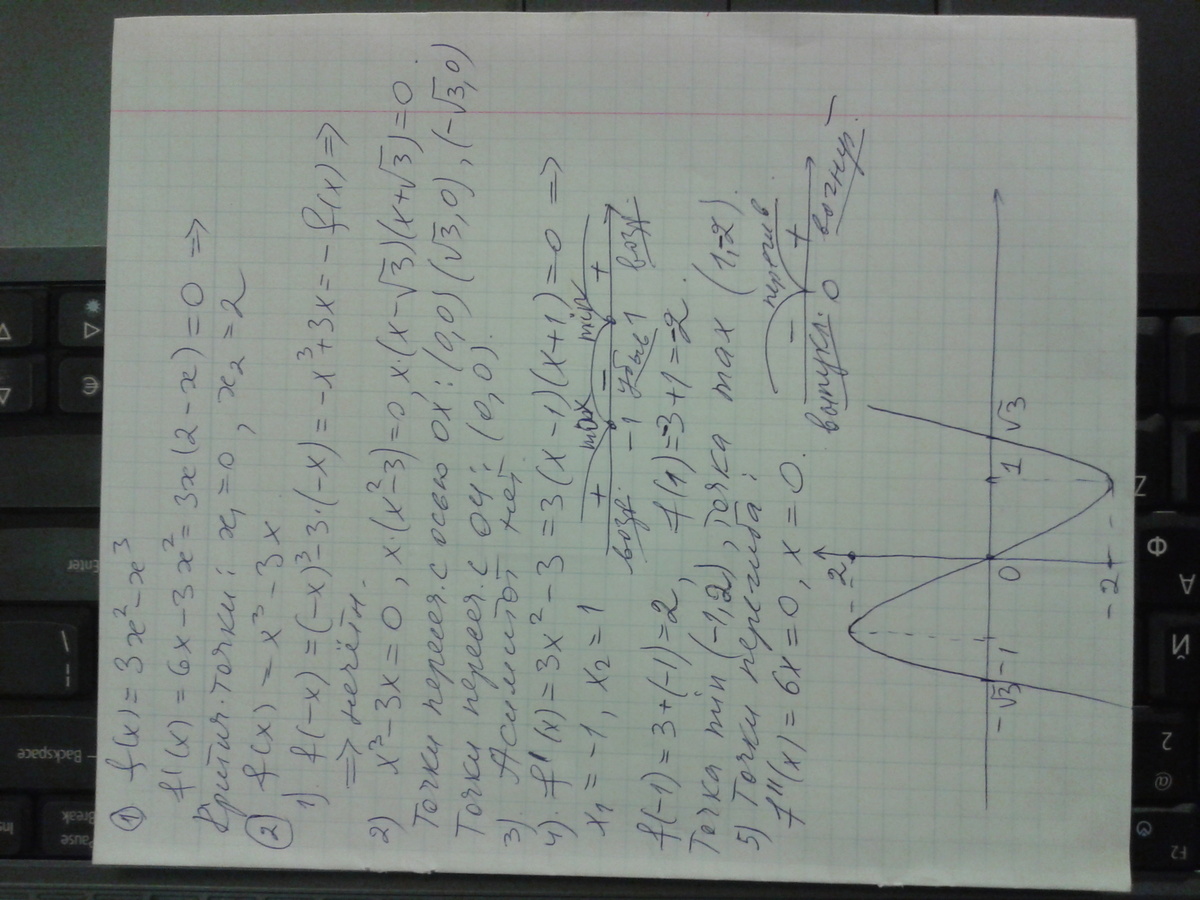 ① f(x) = 3x² - x³
f'(x) = 6x - 3x² = 3x(2 - x) = 0 =>
Критич. точки: x₁ = 0, x₂ = 2
② f(x) = x³ - 3x
1). f(-x) = (-x)³ - 3·(-x) = -x³ + 3x = -f(x) =>
=> нечётн.
2) x³ - 3x = 0, x·(x² - 3) = 0, x·(x - √3)(x + √3) = 0.
Точки пересеч. с осью OX: (0,0) (√3, 0), (-√3, 0)
Точки пересеч. с OY: (0, 0).
3). Асимптот нет.
4). f'(x) = 3x² - 3 = 3(x - 1)(x + 1) = 0 =>
x₁ = -1, x₂ = 1
+ max - min +
возр. -1 убыв 1 возр.
f(-1) = 3 + (-1) = 2, f(1) = -3 + 1 = -2.
Точка min (-1, 2), точка max (1, -2).
5) Точки перегиба:
f''(x) = 6x = 0, x = 0.
перегив
- +
выпукл. 0 вогнут.
2
-√3 -1 0 1 √3
-2
Pause
Break
Ins
Backspace
Enter
\
F2
@
2
Й
Ф
А
Z